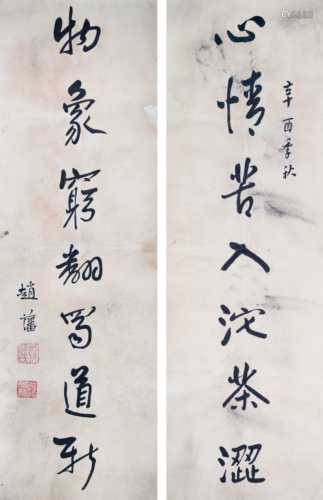 心情苦入沱茶澀
辛酉季秋
物象窮翻蜀道新
趙藩